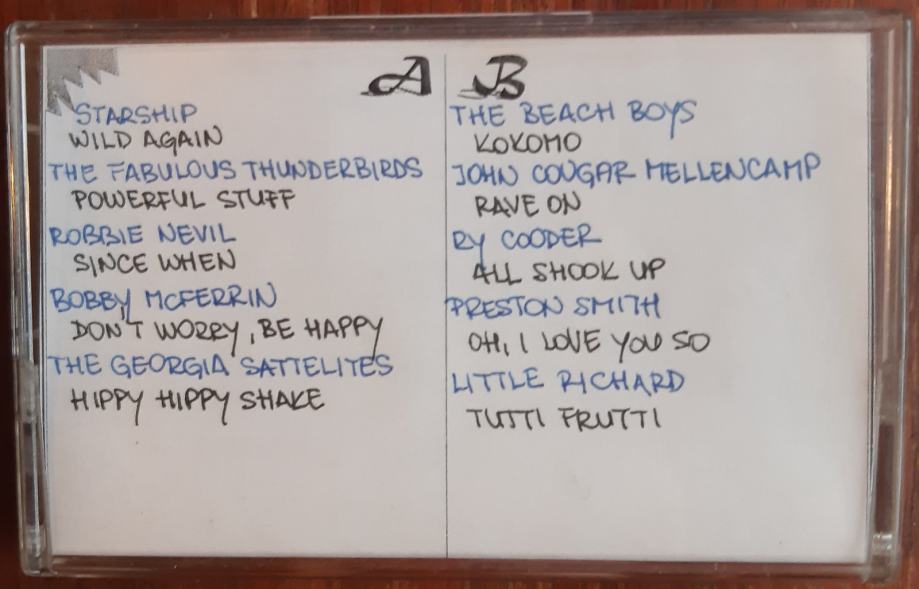 A
STARSHIP
WILD AGAIN
THE FABULOUS THUNDERBIRDS
POWERFUL STUFF
ROBBIE NEVIL
SINCE WHEN
BOBBY MCFERRIN
DON'T WORRY, BE HAPPY
THE GEORGIA SATTELITES
HIPPY HIPPY SHAKE
B
THE BEACH BOYS
KOKOMO
JOHN COUGAR MELLENCAMP
RAVE ON
RY COODER
ALL SHOOK UP
PRESTON SMITH
OH, I LOVE YOU SO
LITTLE RICHARD
TUTTI FRUTTI